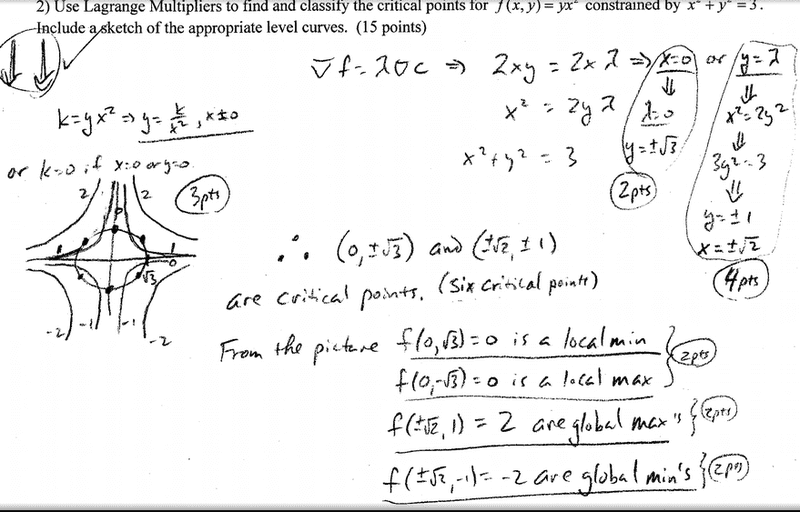 2) Use Lagrange Multipliers to find and classify the critical points for f(x,y) = yx² constrained by x² + y² = 3.
Include a sketch of the appropriate level curves. (15 points)
∇f = λ∇c ⇒ 2xy = 2xλ ⇒ x=0 or y=λ
x² = 2yλ
x²+y² = 3
⇓
λ=0
y=±√3
2pts
⇓
x²=2y²
⇓
3y²=3
⇓
y=±1
x=±√2
4pts
k=yx² ⇒ y= k/x², x≠0
or k=0 if x=0 or y=0.
3pts
2 2
0
1 1
0
√3
-2 -1 -1 -2
∴ (0,±√3) and (±√2, ±1)
are critical points. (Six critical points)
From the picture f(0,√3)=0 is a local min
f(0,-√3)=0 is a local max } 2pts
f(±√2, 1) = 2 are global max's } 2pts
f(±√2,-1)= -2 are global min's } 2pts